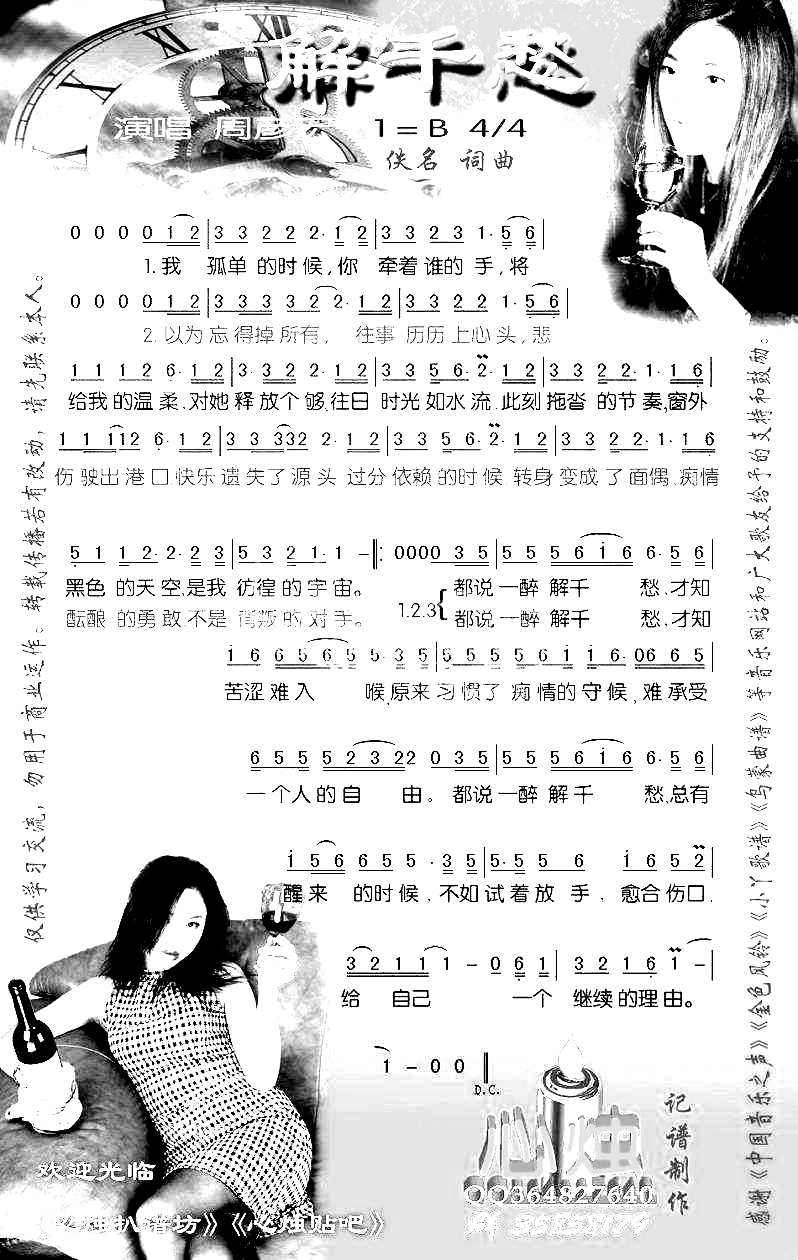 解千愁
演唱 周彦宏 1=B 4/4
佚名 词曲
0 0 0 0 1 2 | 3 3 2 2 2· 1 2 | 3 3 2 3 1· 5 6 |
1.我 孤单 的时候,你 牵着谁的 手,将
0 0 0 0 1 2 | 3 3 3 3 2 2· 1 2 | 3 3 3 2 1 2 1· 5 6 |
2.以为忘得掉所有, 往事 历历上心头,悲
1 1 1 2 6· 1 2 | 3· 3 2 2 2· 1 2 | 3 3 5 6· 2· 1 2 | 3 3 2 2· 1· 1 6 |
给我的温柔,对她 释放个够,往日 时光如水流.此刻 拖沓 的节奏,窗外
1 1 1 1 2 6· 1 2 | 3 3 3 3 2 2· 1 2 | 3· 3 5 6· 2· 1 2 | 3 3 2 2· 1· 1 6 |
伤驶出港口.快乐遗失了源头 过分依赖的时候.转身变成了面偶.痴情
5 1 1 2· 2· 2 3 | 5 3 2 1· 1 – :| 0 0 0 0 0 3 5 | 5 5 5 6 i 6 6· 5 6 |
黑色 的天空,是我 彷徨的宇宙。 都说一醉解千 愁,才知
酝酿 的勇敢.不是 背叛的对手。 1.2.3 都说一醉解千 愁,才知
i 6 6 5 6 5 5· 3 5 | 5 5 5 5 6 i i· 0 6 6 5 |
苦涩难入 喉,原来习惯了 痴情的守候,难承受
6 5 5 5 2 3 2 2 2 0 3 5 | 5 5 5 6 i 6 6· 5 6 |
一个人的自 由。都说一醉解千 愁,总有
i 5 6 6 5 5 · 3 5 | 5· 5 5 6 i 6 5 2 |
醒来 的时候,不如试着放 手,愈合伤口.
3 2 1 1 1 – 0 6 1 | 3 2 1 6 1 – |
给 自己 一个 继续的理由。
1 – 0 0 ||
D.C.
仅供学习交流,勿用于商业运作。转载传播若有改动,请先联系本人。
感谢《中国音乐之声》《金色风铃》《小丫歌谱》《乌蒙曲谱》等音乐网站和广大歌友给予的支持和鼓励。
记谱制作
心烛
QQ364827640
群 35858179
欢迎光临
《心烛扒谱坊》《心烛贴吧》